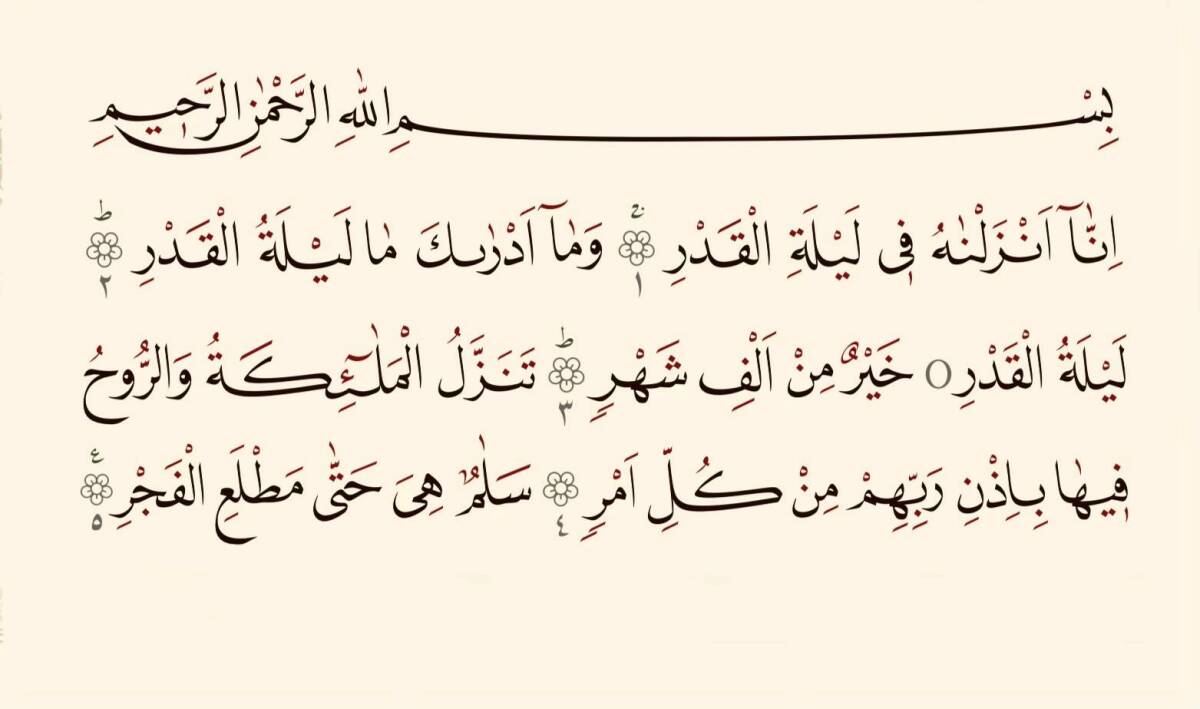 بِسْمِ اللهِ الرَّحْمٰنِ الرَّحِيْمِ
اِنَّاۤ اَنْزَلْنٰهُ فِی لَيْلَةِ الْقَدْرِ ۚ ۝۱ وَمَاۤ اَدْرٰىكَ مَا لَيْلَةُ الْقَدْرِ ؕ ۝۲
لَيْلَةُ الْقَدْرِ ۝ خَيْرٌ مِنْ اَلْفِ شَهْرٍ ؕ ۝۳ تَنَزَّلُ الْمَلٰٓئِكَةُ وَالرُّوحُ
فِيهَا بِاِذْنِ رَبِّهِمْ مِنْ كُلِّ اَمْرٍ ۝٤ سَلٰمٌ هِیَ حَتّٰى مَطْلَعِ الْفَجْرِ ع ۝۵